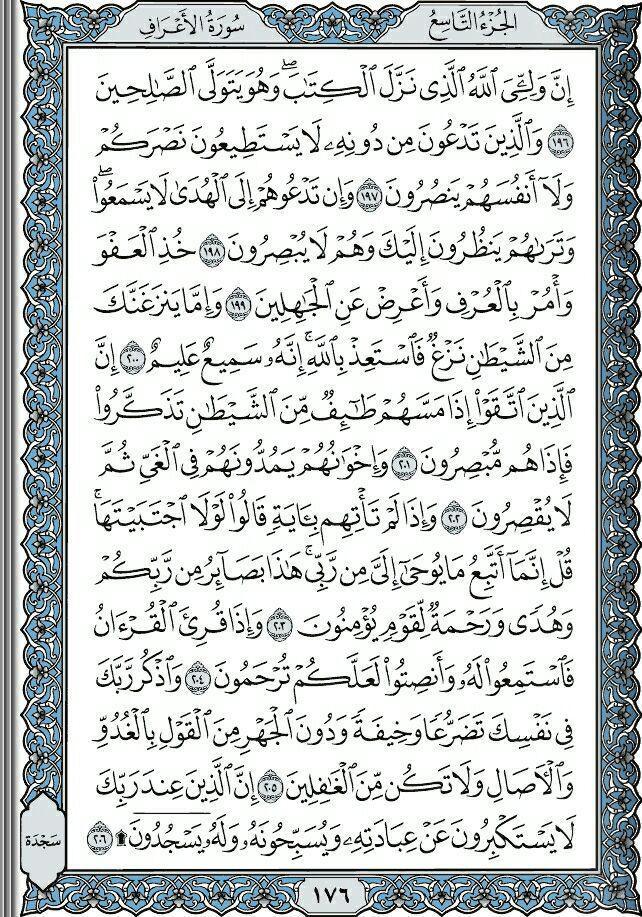 الجزء التاسع
سورة الأعراف
إِنَّ وَلِـِّۧيَ ٱللَّهُ ٱلَّذِي نَزَّلَ ٱلْكِتَٰبَۖ وَهُوَ يَتَوَلَّى ٱلصَّٰلِحِينَ
١٩٦ وَٱلَّذِينَ تَدْعُونَ مِن دُونِهِۦ لَا يَسْتَطِيعُونَ نَصْرَكُمْ
وَلَآ أَنفُسَهُمْ يَنصُرُونَ ١٩٧ وَإِن تَدْعُوهُمْ إِلَى ٱلْهُدَىٰ لَا يَسْمَعُوا۟ۖ
وَتَرَىٰهُمْ يَنظُرُونَ إِلَيْكَ وَهُمْ لَا يُبْصِرُونَ ١٩٨ خُذِ ٱلْعَفْوَ
وَأْمُرْ بِٱلْعُرْفِ وَأَعْرِضْ عَنِ ٱلْجَٰهِلِينَ ١٩٩ وَإِمَّا يَنزَغَنَّكَ
مِنَ ٱلشَّيْطَٰنِ نَزْغٌ فَٱسْتَعِذْ بِٱللَّهِۚ إِنَّهُۥ سَمِيعٌ عَلِيمٌ ٢٠٠ إِنَّ
ٱلَّذِينَ ٱتَّقَوْا۟ إِذَا مَسَّهُمْ طَٰٓئِفٌ مِّنَ ٱلشَّيْطَٰنِ تَذَكَّرُوا۟
فَإِذَا هُم مُّبْصِرُونَ ٢٠١ وَإِخْوَٰنُهُمْ يَمُدُّونَهُمْ فِي ٱلْغَيِّ ثُمَّ
لَا يُقْصِرُونَ ٢٠٢ وَإِذَا لَمْ تَأْتِهِم بِـَٔايَةٍ قَالُوا۟ لَوْلَا ٱجْتَبَيْتَهَاۚ
قُلْ إِنَّمَآ أَتَّبِعُ مَا يُوحَىٰٓ إِلَيَّ مِن رَّبِّيۚ هَٰذَا بَصَآئِرُ مِن رَّبِّكُمْ
وَهُدًى وَرَحْمَةٌ لِّقَوْمٍ يُؤْمِنُونَ ٢٠٣ وَإِذَا قُرِئَ ٱلْقُرْءَانُ
فَٱسْتَمِعُوا۟ لَهُۥ وَأَنصِتُوا۟ لَعَلَّكُمْ تُرْحَمُونَ ٢٠٤ وَٱذْكُر رَّبَّكَ
فِي نَفْسِكَ تَضَرُّعًا وَخِيفَةً وَدُونَ ٱلْجَهْرِ مِنَ ٱلْقَوْلِ بِٱلْغُدُوِّ
وَٱلْـَٔاصَالِ وَلَا تَكُن مِّنَ ٱلْغَٰفِلِينَ ٢٠٥ إِنَّ ٱلَّذِينَ عِندَ رَبِّكَ
لَا يَسْتَكْبِرُونَ عَنْ عِبَادَتِهِۦ وَيُسَبِّحُونَهُۥ وَلَهُۥ يَسْجُدُونَ ۩ ٢٠٦
سَجْدَة
١٧٦